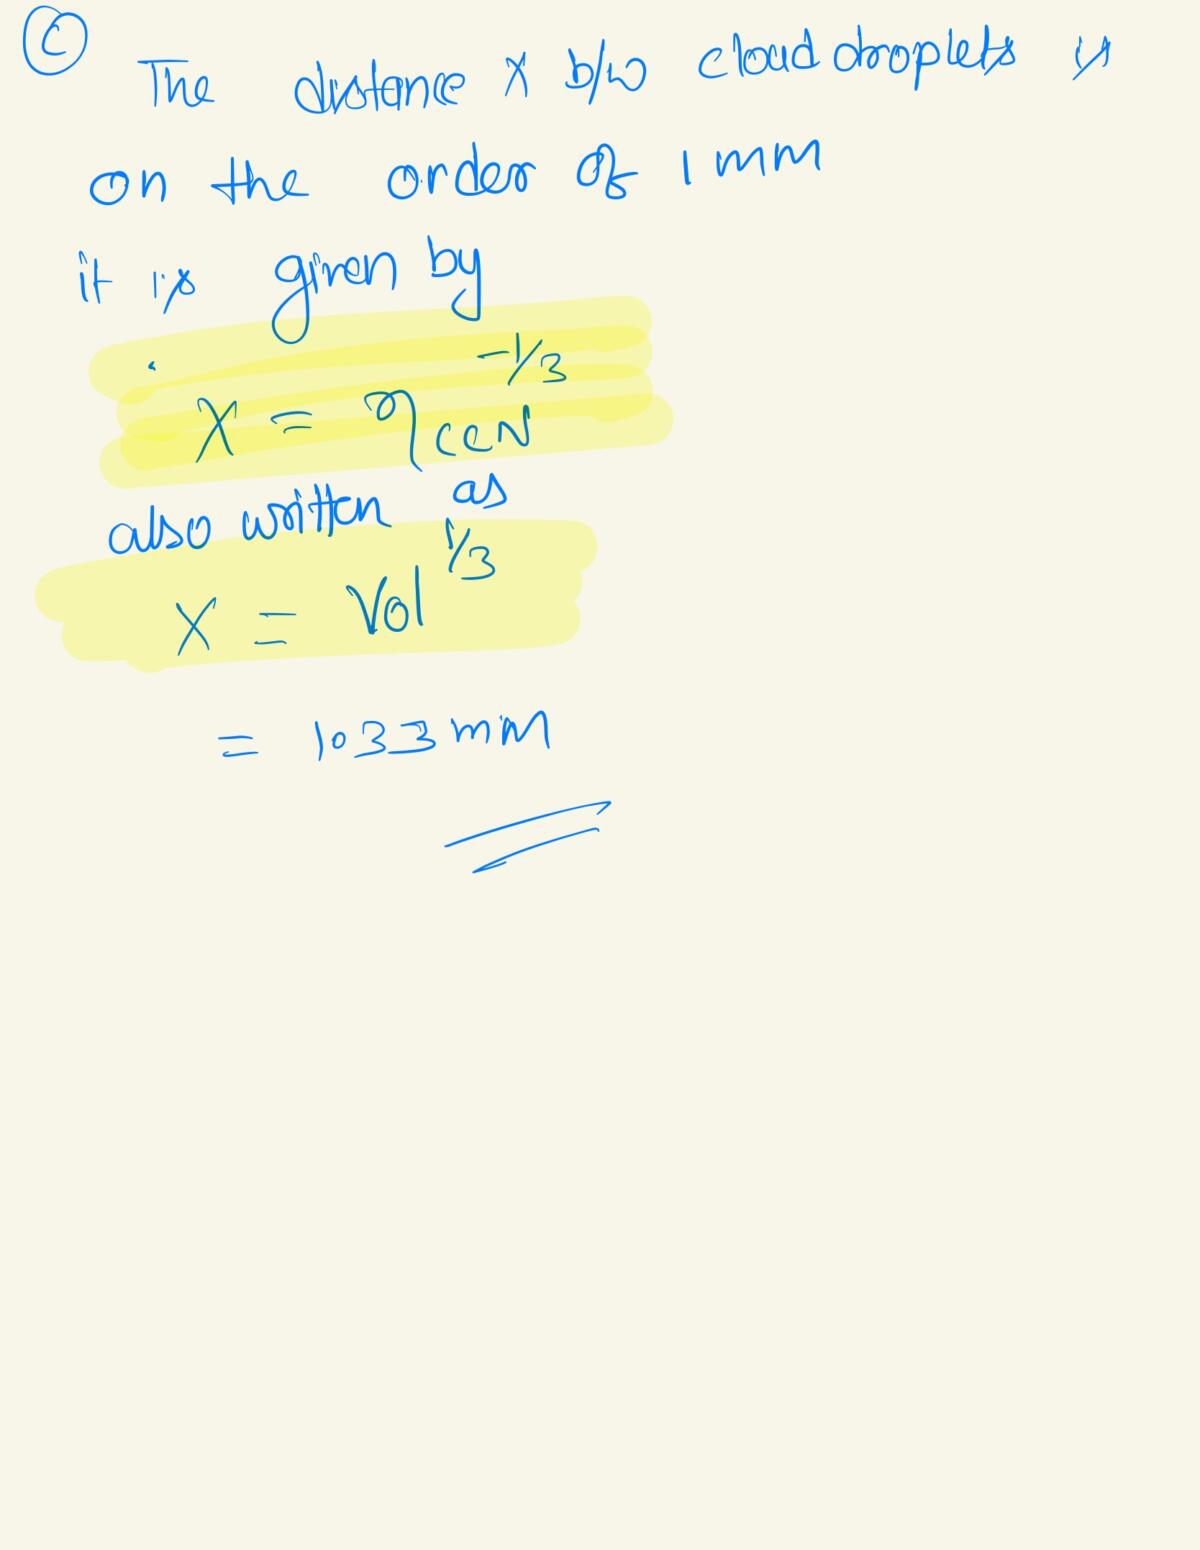 (c)
The distance X b/w cloud droplets is
on the order of 1 mm
it is given by
X = η_CCN^(-1/3)
also written as
X = Vol^(1/3)
= 1.033 mm